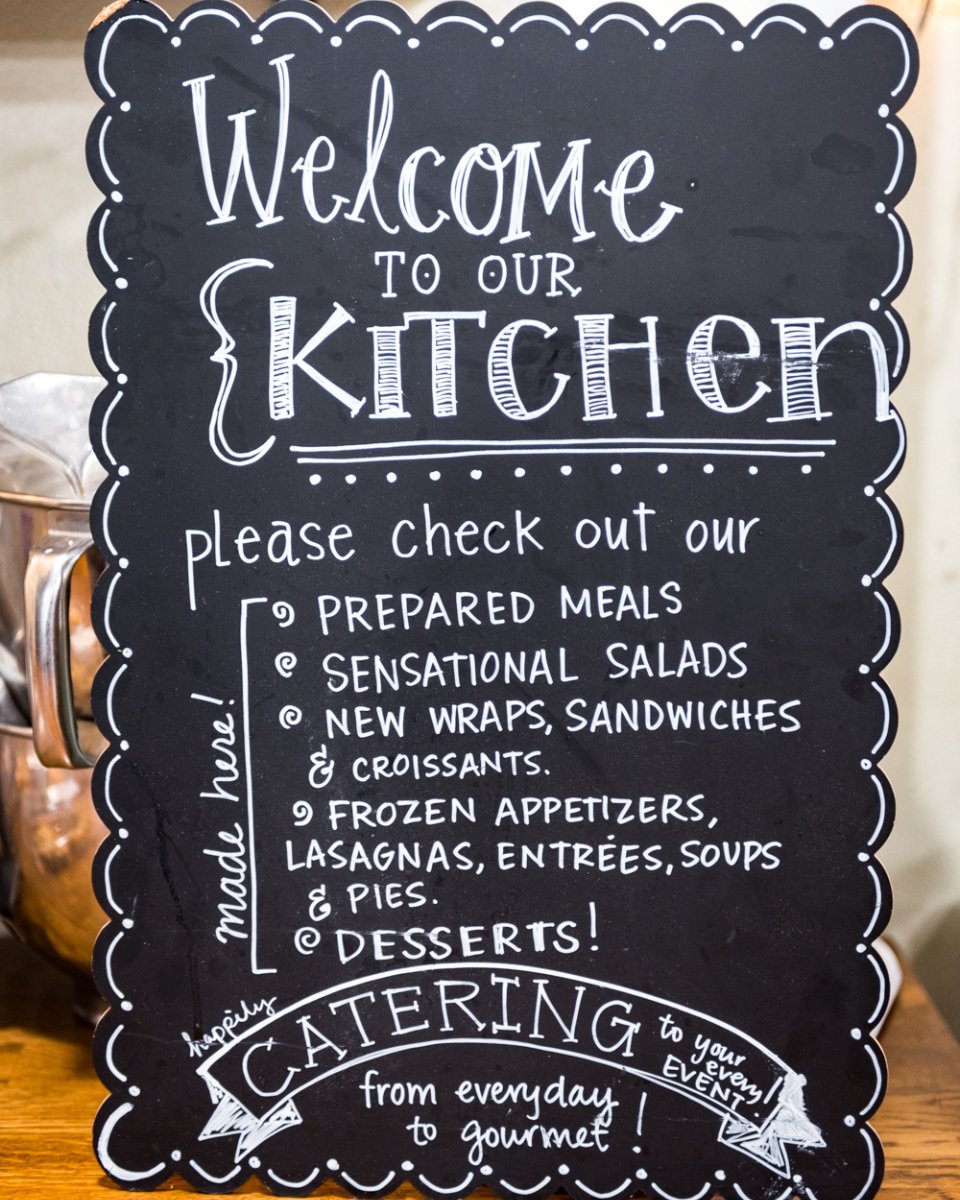 Welcome
TO OUR
KITCHEN
please check out our
made here!
PREPARED MEALS
SENSATIONAL SALADS
NEW WRAPS, SANDWICHES
& CROISSANTS.
FROZEN APPETIZERS,
LASAGNAS, ENTRÉES, SOUPS
& PIES.
DESSERTS!
happily
CATERING
to your
every
EVENT!
from everyday
to gourmet!